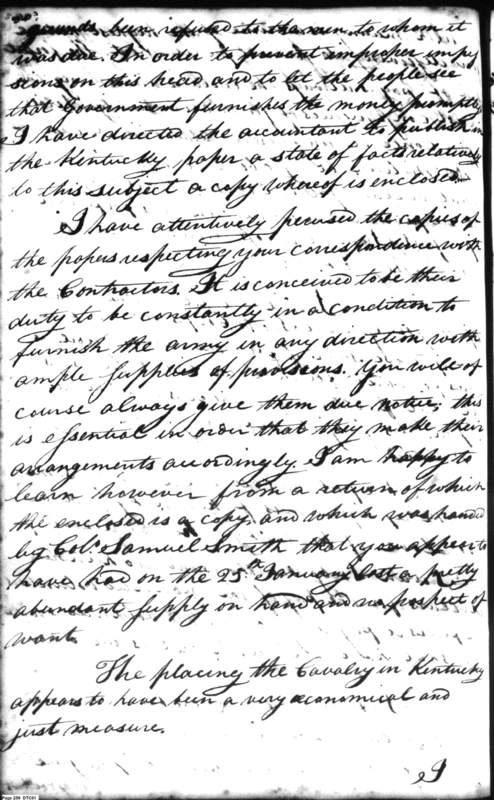 grounds been refused to the men to whom it
was due. In order to prevent improper impres
sions on this head and to let the people see
that Government furnishes the money promptly
I have directed the accountant to publish in
the Kentucky paper a state of facts relatively
to this subject a copy whereof is enclosed.
I have attentively perused the copies of
the papers respecting your correspondence with
the Contractors. It is conceived to be their
duty to be constantly in a condition to
furnish the army in any direction with
ample supplies of provisions. You will of
course always give them due notice, this
is essential in order that they make their
arrangements accordingly. I am happy to
learn however from a return of which
the enclosed is a copy and which was handed
by Col. Samuel Smith that you appear to
have had on the 25th January last a pretty
abundant supply on hand and no prospect of
want.
The placing the Cavalry in Kentucky
appears to have been a very economical and
just measure.
I
Page 259 DTC01